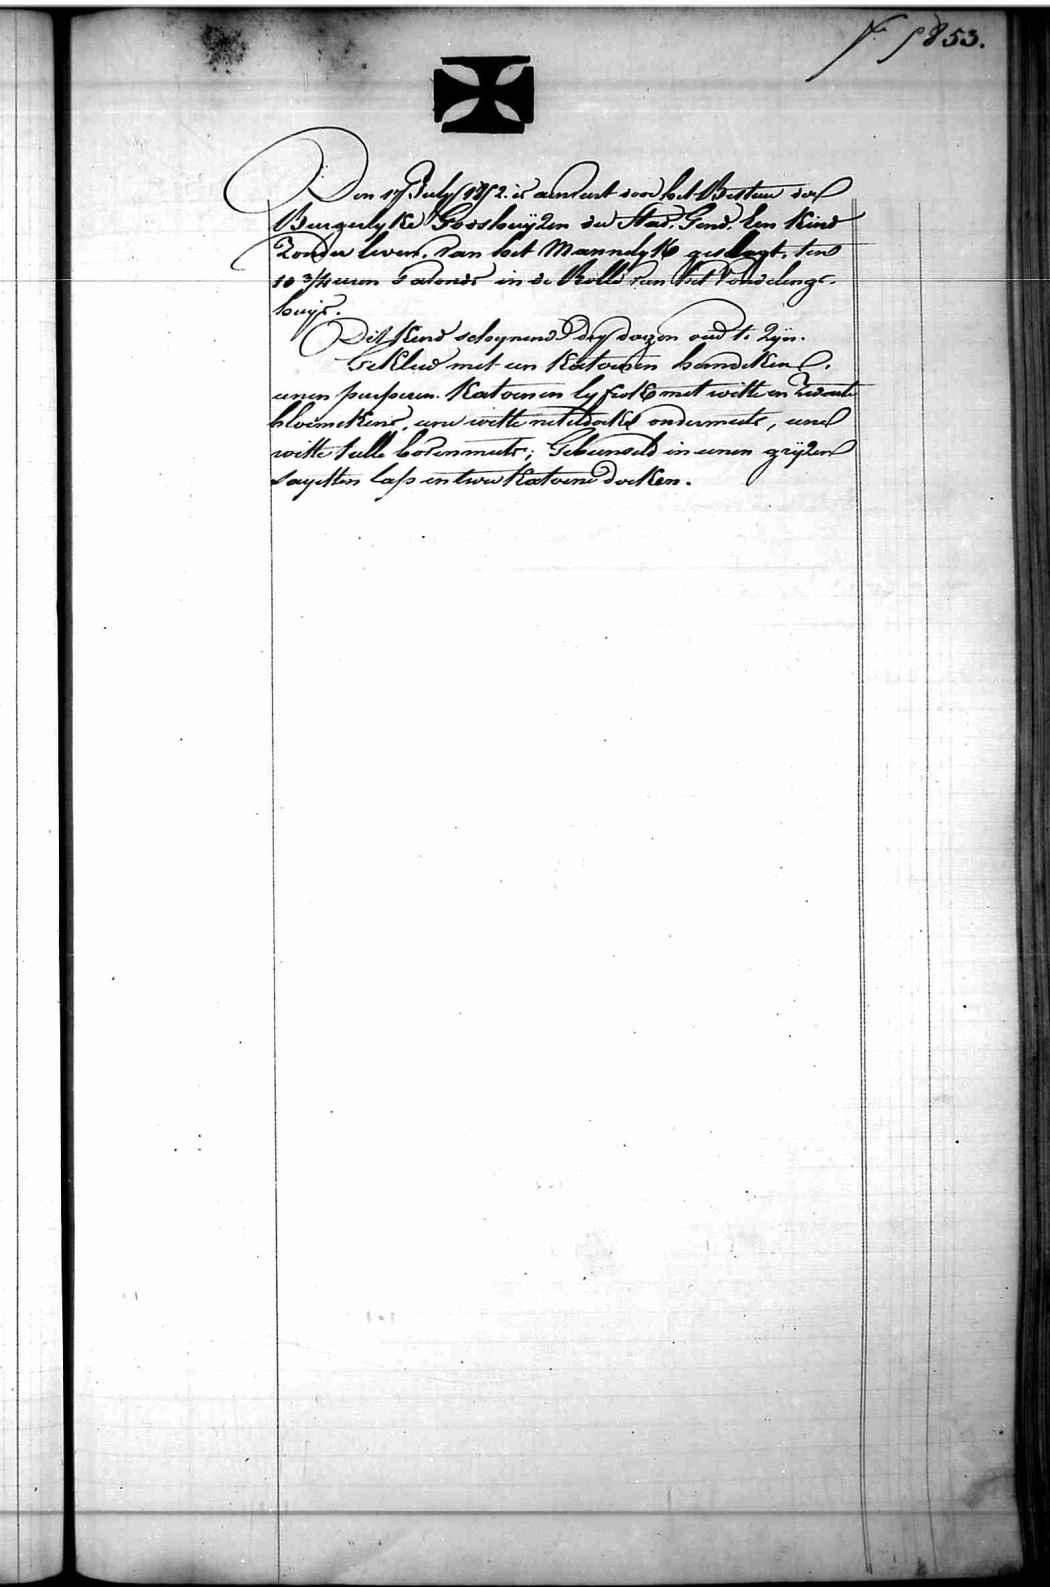 N.º 9853.
Den 17 July 1852. is aenveert door het Bestuer der
Burgerlyke Godshuijzen der Stad. Gend. Een Kind
Zonder leven. van het Mannelyk geslagt, ten
10 3/4 uren s'avonds in de Rolle van het Vondelings-
huijs.
Dit Kind schynende dry dagen oud te zijn.
Gekleed met een Katoenen hemdeken,
eenen purperen Katoenen lyfrok met witte en zwarte
bloemekens, eene witte neteldoeke ondermuts, eene
witte tulle bovenmuts; Gebunseld in eenen grijzen
sayetten lap en twee Katoene doeken.